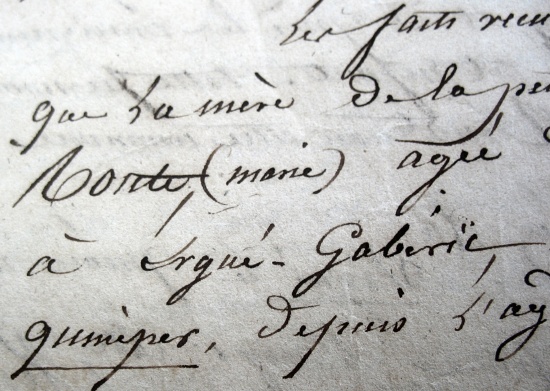 Les faits recu
que La mère de la pe
(marie) agée
à Ergué-Gabéric,
quimper, depuis L'ag